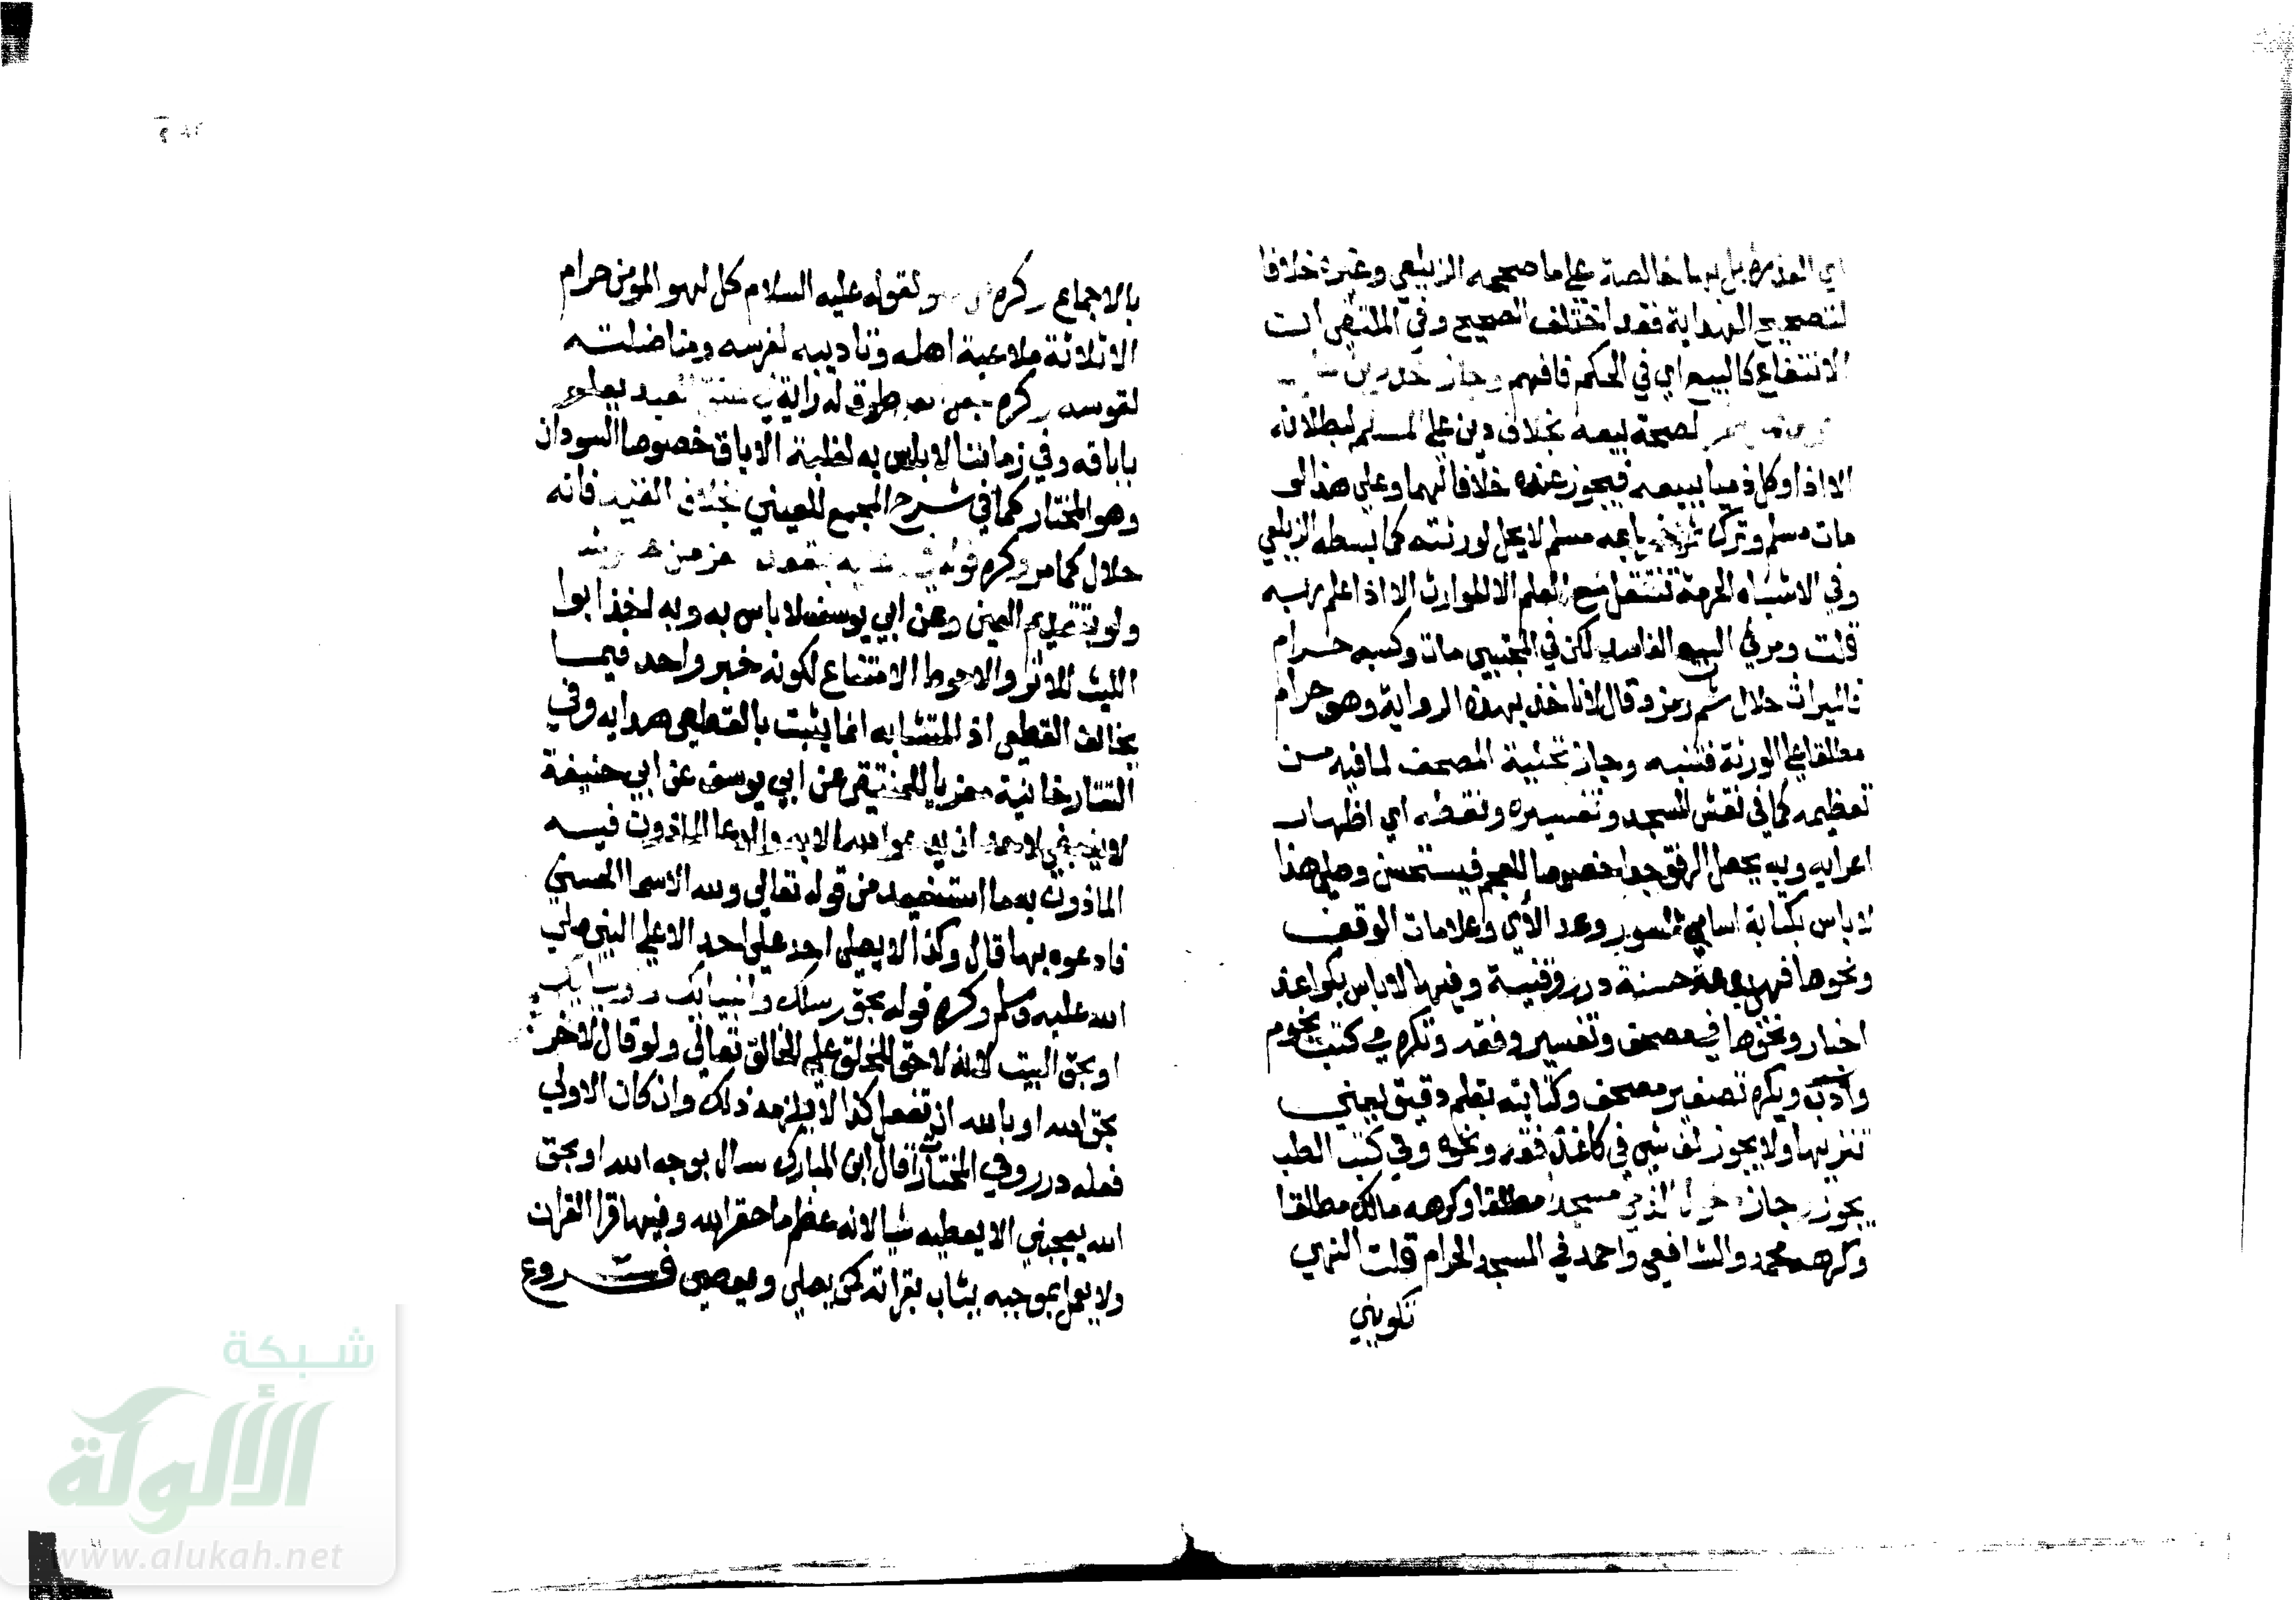 اي العذرة بل بها خالصة علي ما صححه الزيلعي وغيره خلافا
لتصحيح الهداية فقد اختلف الصحيح وفي الملتقي ان
الانتفاع كالبيع اي في الحكم فافهم وجاز
لصحة بيعه بخلاف دين علي المسلم لبطلانه
الا اذا وكل ذميا ببيعه فيجوز عنده خلافا لهما وعلي هذا لو
مات مسلم وترك ثمن خمر باعه مسلم لا يحل لورثته كما بسطه الزيلعي
وفي الاشباه الحرمة تنتقل مع العلم الا للوارث الا اذا علم ربه
قلت ومر في البيع الفاسد لكن في المجتبي مات وكسبه حرام
فالميراث حلال ثم رمز وقال لا ناخذ بهذه الرواية وهو حرام
مطلقا علي الورثة فتنبه وجاز تحلية المصحف لما فيه من
تعظيمه كما في نقش المسجد وتعشيره ونقطه اي اظهار
اعرابه وبه يحصل الرفق جدا خصوصا للعجم فيستحسن وعلي هذا
لا باس بكتابة اسامي السور وعد الآي وعلامات الوقف
ونحوها فهي بدعة حسنة درر وقنية وفيها لا باس بكواغد
اخبار ونحوها في مصحف وتفسير وفقه وتكره في كتب نجوم
وادب ويكره تصغير مصحف وكتابته بقلم دقيق يعني
تنزيها ولا يجوز لف شي في كاغذ فقه ونحوه وفي كتب الطب
يجوز وجاز دخول الذمي مسجدا مطلقا وكرهه مالك مطلقا
وكرهه محمد والشافعي واحمد في المسجد الحرام قلت النهي
تكويني
بالاجماع وكره كل لهو لقوله عليه السلام كل لهو المومن حرام
الا ثلاثة ملاعبة اهله وتاديبه لفرسه ومناضلته
لقوسه وكره جعل طوق له راية في عنق العبد يعلم
باباقه وفي زماننا لا باس به لغلبة الاباق خصوصا السودان
وهو المختار كما في شرح المجمع للعيني بخلاف القيد فانه
حلال كما مر وكره قوله في دعايه بمقعد العز من عرشك
ولو بتقديم العين وعن ابي يوسف لا باس به وبه اخذ ابوا
الليث للاثر والاحوط الامتناع لكونه خبر واحد فيما
يخالف القطعي اذ المتشابه انما يثبت بالقطعي هدايه وفي
التتارخانية معزيا للمنتقي عن ابي يوسف عن ابي حنيفة
لا ينبغي لاحد ان يدعو الله الا به والدعا الماذون فيه
الماذون به ما استفيد من قوله تعالي ولله الاسما الحسني
فادعوه بها قال وكذا لا يصلي احد علي احد الا علي النبي صلي
الله عليه وسلم وكره قوله بحق رسلك وانبيايك
او بحق البيت لانه لا حق للخلق علي الخالق تعالي ولو قال لاخر
بحق الله او بالله ان تفعل كذا لا يلزمه ذلك وان كان الاولي
فعله درر وفي المختارات قال ابن المبارك سال بوجه الله او بحق
الله يعجبني الا يعطيه شيا لانه عظم ما حقر الله وفيها قرا القران
ولا يعمل بموجبه يثاب بقراته كمن يصلي ويعصي فروع
شبكة
الألوكة
www.alukah.net